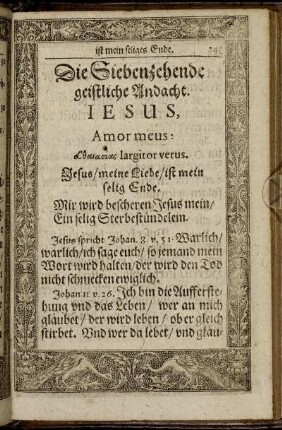 ist mein seliges Ende.
Die Siebenzehende
geistliche Andacht.
IESUS,
Amor meus:
largitor verus.
Jesus/ meine Liebe/ ist mein
selig Ende.
Mir wird bescheren Jesus mein/
Ein selig Sterbestündelein.
Jesus spricht Johan. 8. v. 51. Warlich/
warlich/ ich sage euch/ so jemand mein
Wort wird halten/ der wird den Tod
nicht schmecken ewiglich.
Johan. 11. v. 26. Ich bin die Aufferste-
hung vnd das Leben/ wer an mich
glaubet/ der wird leben/ ob er gleich
stirbet. Vnd wer da lebet/ vnd glau-